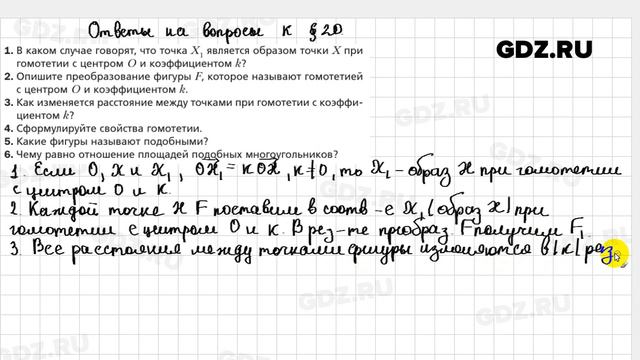 Ответы на вопросы к § 20
GDZ.RU
1. В каком случае говорят, что точка X₁ является образом точки X при
гомотетии с центром O и коэффициентом k?
2. Опишите преобразование фигуры F, которое называют гомотетией
с центром O и коэффициентом k.
3. Как изменяется расстояние между точками при гомотетии с коэффи-
циентом k?
4. Сформулируйте свойства гомотетии.
5. Какие фигуры называют подобными?
6. Чему равно отношение площадей подобных многоугольников?
1. Если O, X и X₁, OX₁ = k OX, k ≠ 0, то X₁ - образ X при гомотетии
с центром O и k.
2. Каждой точке X F поставим в соотв-е X₁ (образ X) при
гомотетии с центром O и k. В рез-те преобраз. F получим F₁.
3. Все расстояния между точками фигуры изменяются в |k| раз